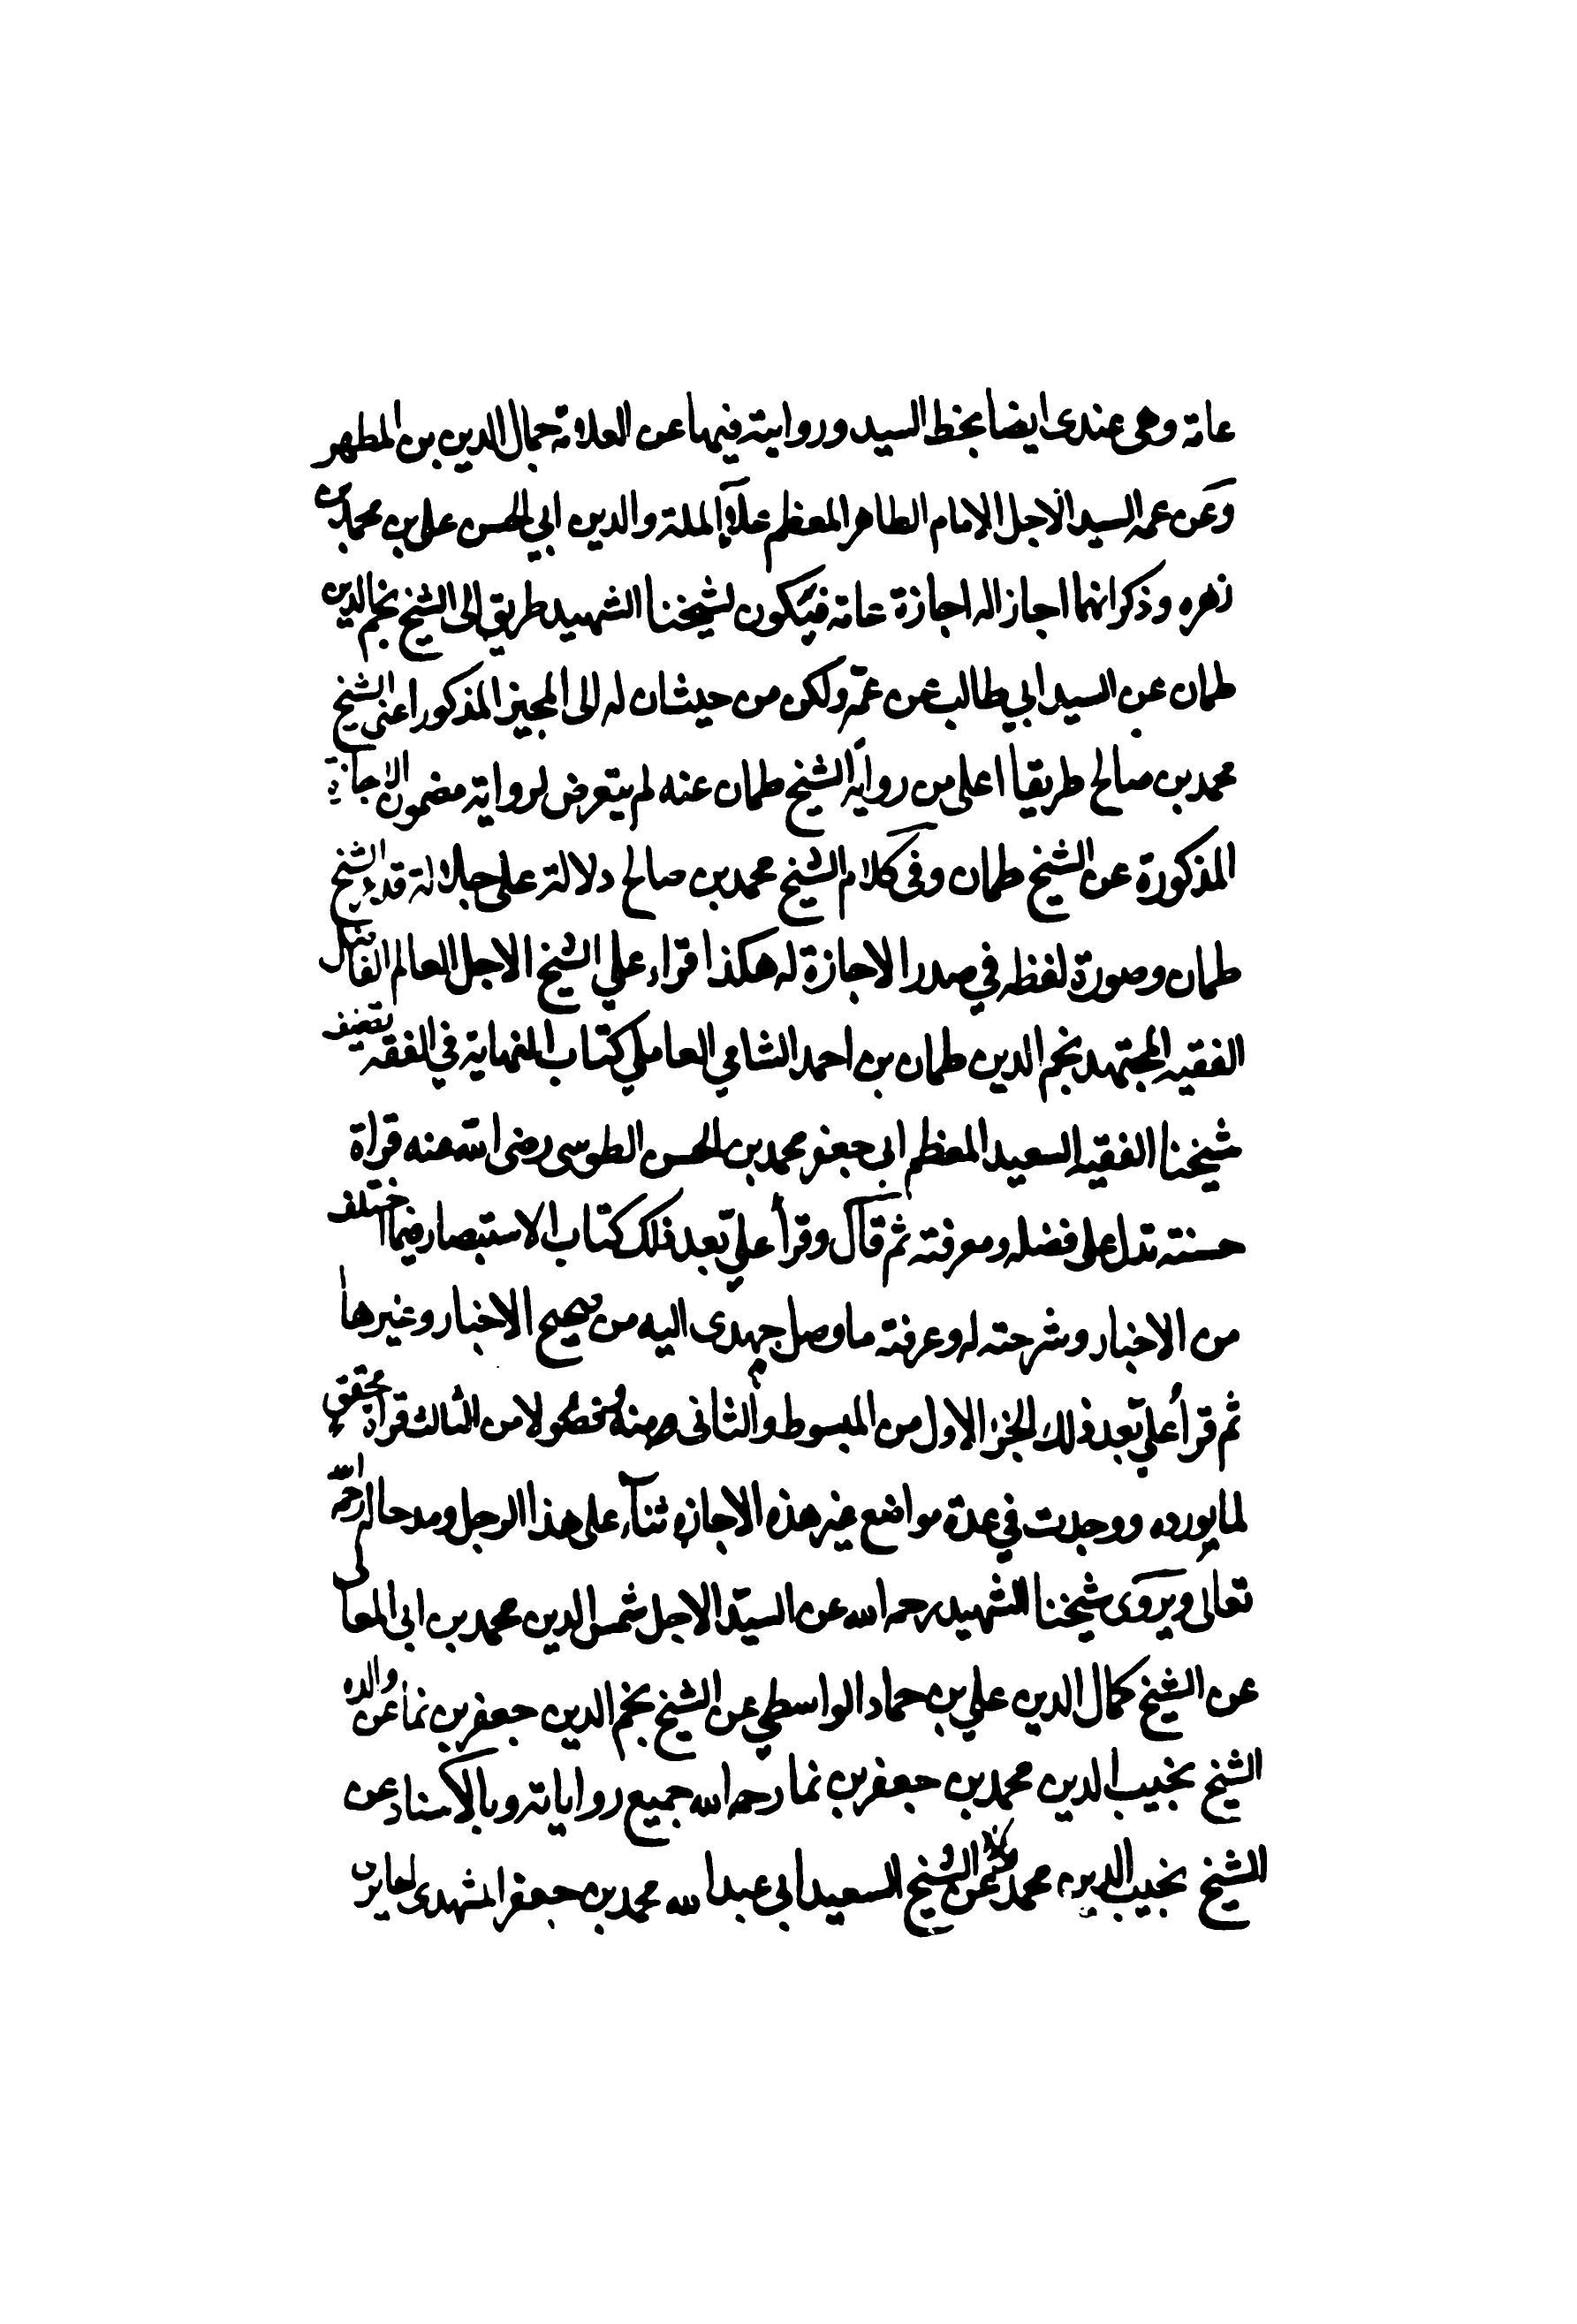 عامة وهى عندى ايضا بخط السيد وروايته فيها عن العلامة جمال الدين بن المطهر
وعن عمه السيد الاجل الامام الطاهر المعظم علآء الملة والدين ابي الحسن علي بن محمد بن
زهره وذكر انهما اجازا له اجازة عامة فيكون لشيخنا الشهيد طريق الى الشيخ نجم الدين
طمان عن السيد ابي طالب عن عمه ولكن من حيث ان له الى المجيز المذكور اعنى الشيخ
محمد بن صالح طريقا اعلى من رواية الشيخ طمان عنه لم يتعرض لرواية مضمون الاجازة
المذكورة عن الشيخ طمان وفى كلام الشيخ محمد بن صالح دلالة على جلالة قدر الشيخ
طمان وصورة لفظه في صدر الاجازة له هكذا قراء علي الشيخ الاجل العالم الفاضل
الفقيه المجتهد نجم الدين طمان بن احمد الشامي العاملي كتاب النهاية في الفقه تصنيف
شيخنا الفقيه السعيد المعظم ابى جعفر محمد بن الحسن الطوسى رضى الله عنه قراة
حسنة تدل على فضله ومعرفته ثم قال وقرأ علي بعد ذلك كتاب الاستبصار فيما اختلف
من الاخبار وشرحته له وعرفته ما وصل جهدى اليه من صحيح الاخبار وغيرها
ثم قرأ علي بعد ذلك الجزء الاول من المبسوط والثانى منه من الثالث قراة محقق
لما يورده ووجدت في عدة مواضع غير هذه الاجازه ثنآء على هذا الرجل ومدحا له رحمه الله
تعالى ويروى شيخنا الشهيد رحمه الله عن السيد الاجل شمس الدين محمد بن ابى المعالى
عن الشيخ كمال الدين علي بن حماد الواسطي عن الشيخ نجم الدين جعفر بن نما عن والده
الشيخ نجيب الدين محمد بن جعفر بن نما رحمه الله جميع رواياته وبالاسناد عن
الشيخ نجيب الدين محمد عن الشيخ السعيد ابى عبد الله محمد بن جعفر المشهدى